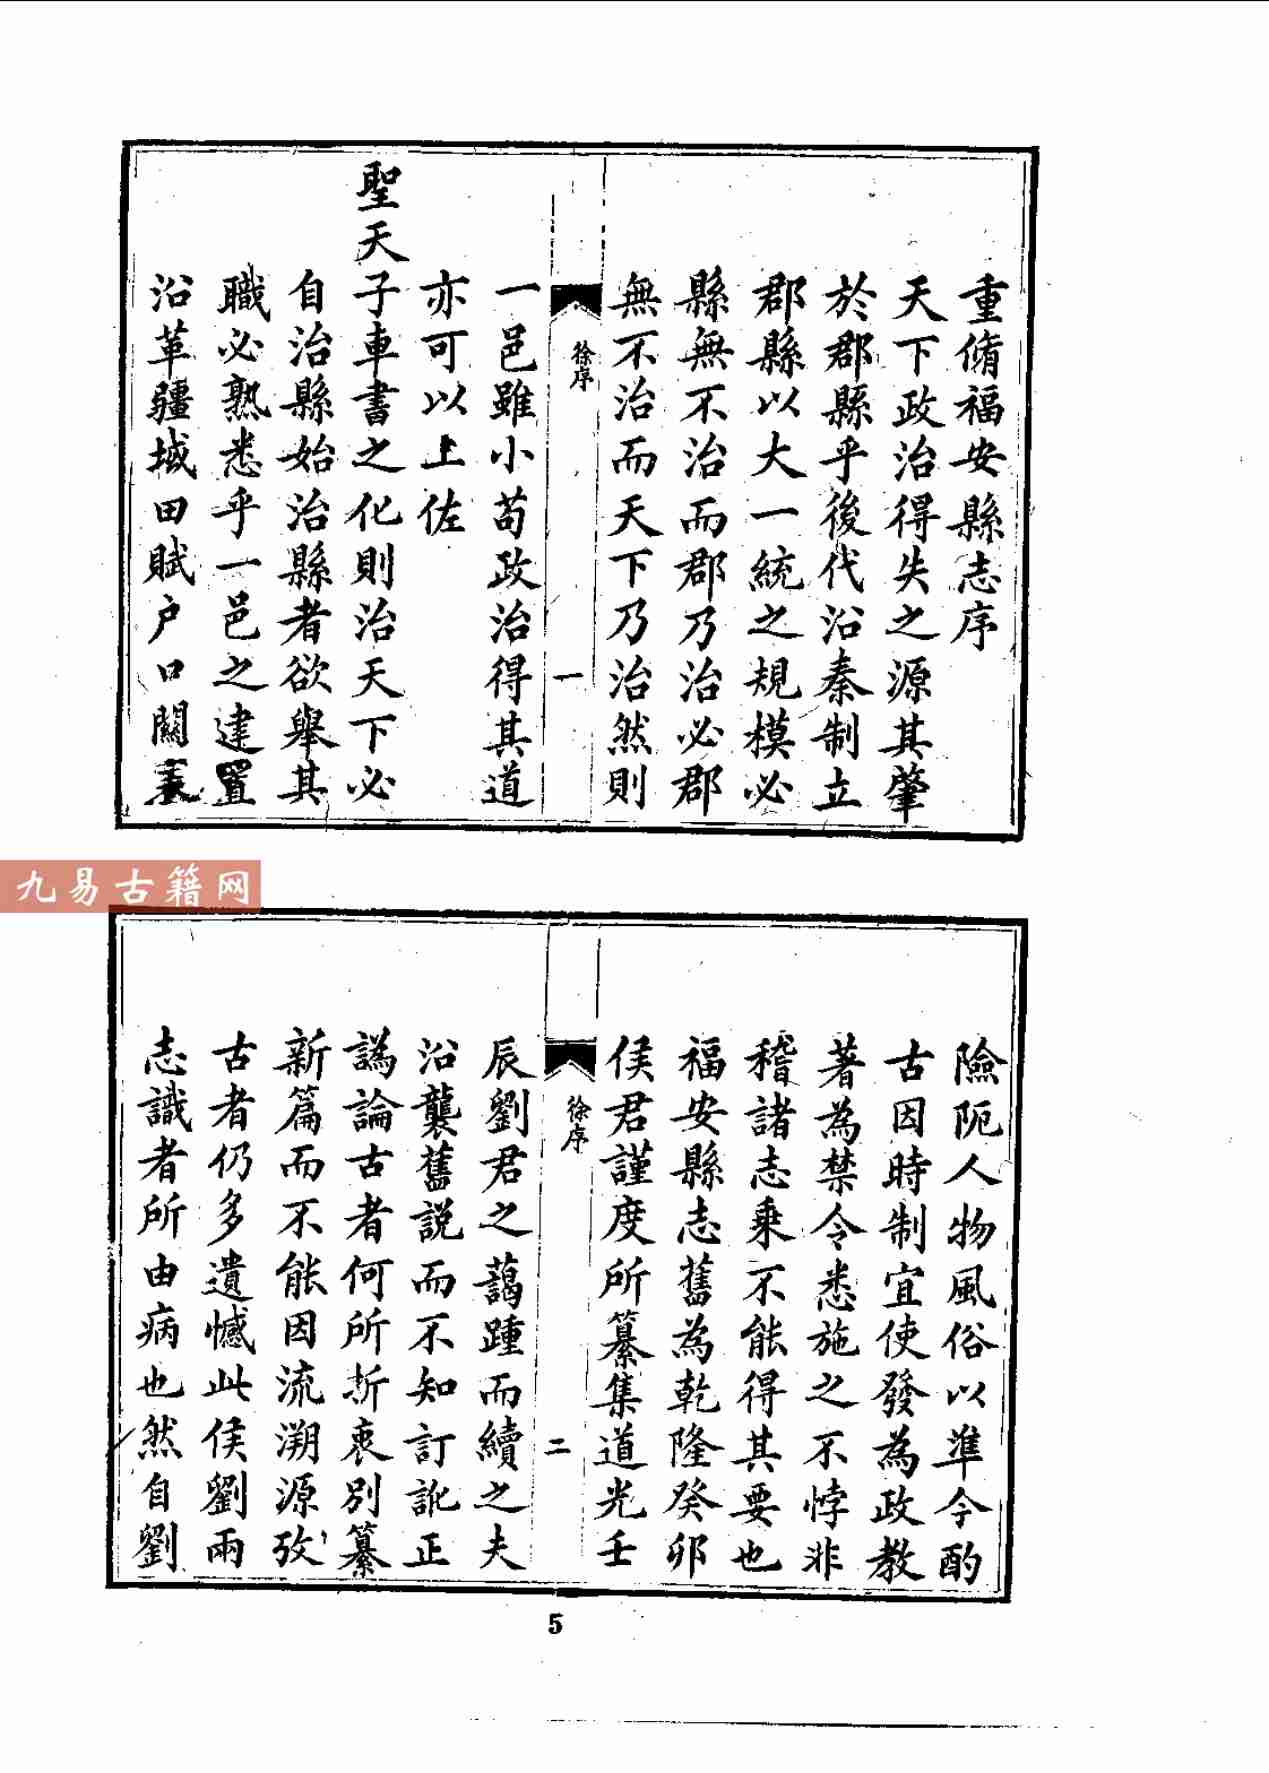 重脩福安縣志序
天下政治得失之源其肇
於郡縣乎後代沿秦制立
郡縣以大一統之規模必
縣無不治而郡乃治必郡
無不治而天下乃治然則
徐序
一
一邑雖小苟政治得其道
亦可以上佐
聖天子車書之化則治天下必
自治縣始治縣者欲舉其
職必熟悉乎一邑之建置
沿革疆域田賦户口關
九易古籍网
險阨人物風俗以準今酌
古因時制宜使發為政教
著為禁令悉施之不悖非
稽諸志乗不能得其要也
福安縣志舊為乾隆癸卯
侯君謹度所纂集道光壬
徐序
二
辰劉君之藹踵而續之夫
沿襲舊説而不知訂訛正
譌論古者何所折衷別纂
新篇而不能因流溯源攷
古者仍多遺憾此侯劉兩
志識者所由病也然自劉
5